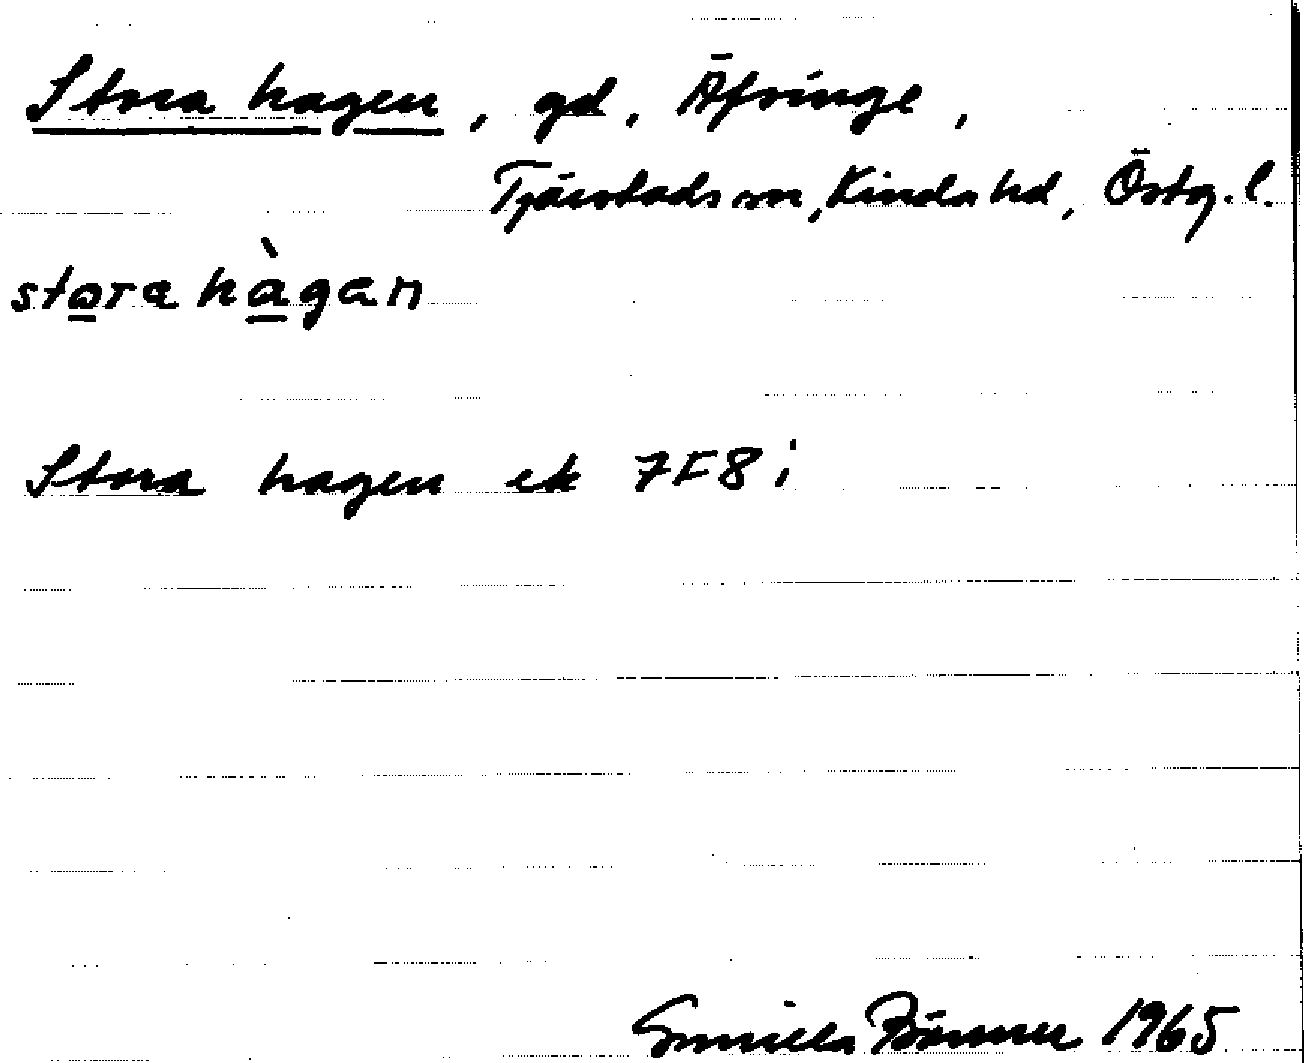 Stora hagen, gd, Äfvinge,
Tjärstads sn, Kinda hd, Östg.l.
stora hàgan
Stora hagen ek 7F8i
Gunilla 1965